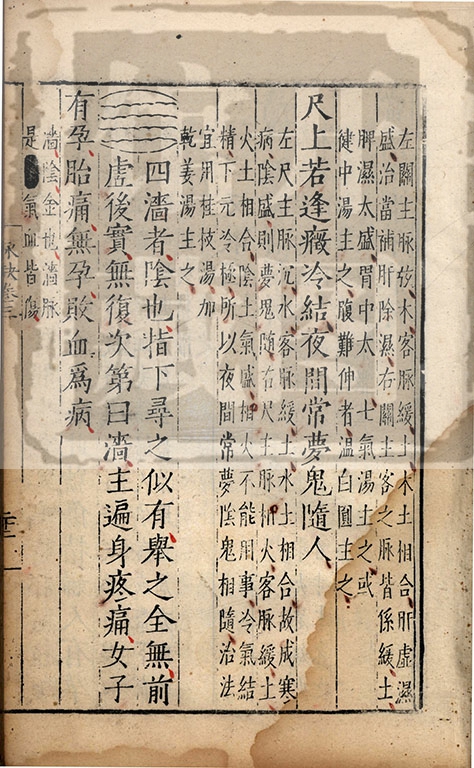 左關主脉弦木客脉緩土木土相合肝虛濕
盛治當補肝除濕右關主客之脉皆係緩土
脾濕太盛胃中太 七氣湯主之或
健中湯主之腹難伸者温白圓主之
尺上若逢癥冷結夜間常夢鬼隨人
左尺主脉沉水客脉緩土水土相合故成寒
病陰盛則夢鬼隨右尺主脉相火客脉緩土
火土相合陰土氣盛相火不能用事冷氣結
精下元冷極所以夜間常夢陰鬼相隨治法
宜用桂枝湯加
乾姜湯主之
四濇者陰也指下尋之似有舉之全無前
虛後實無復次第曰濇主遍身疼痛女子
有孕胎痛無孕敗血爲病
濇陰金也濇脉
是 氣血皆傷
脉决卷三